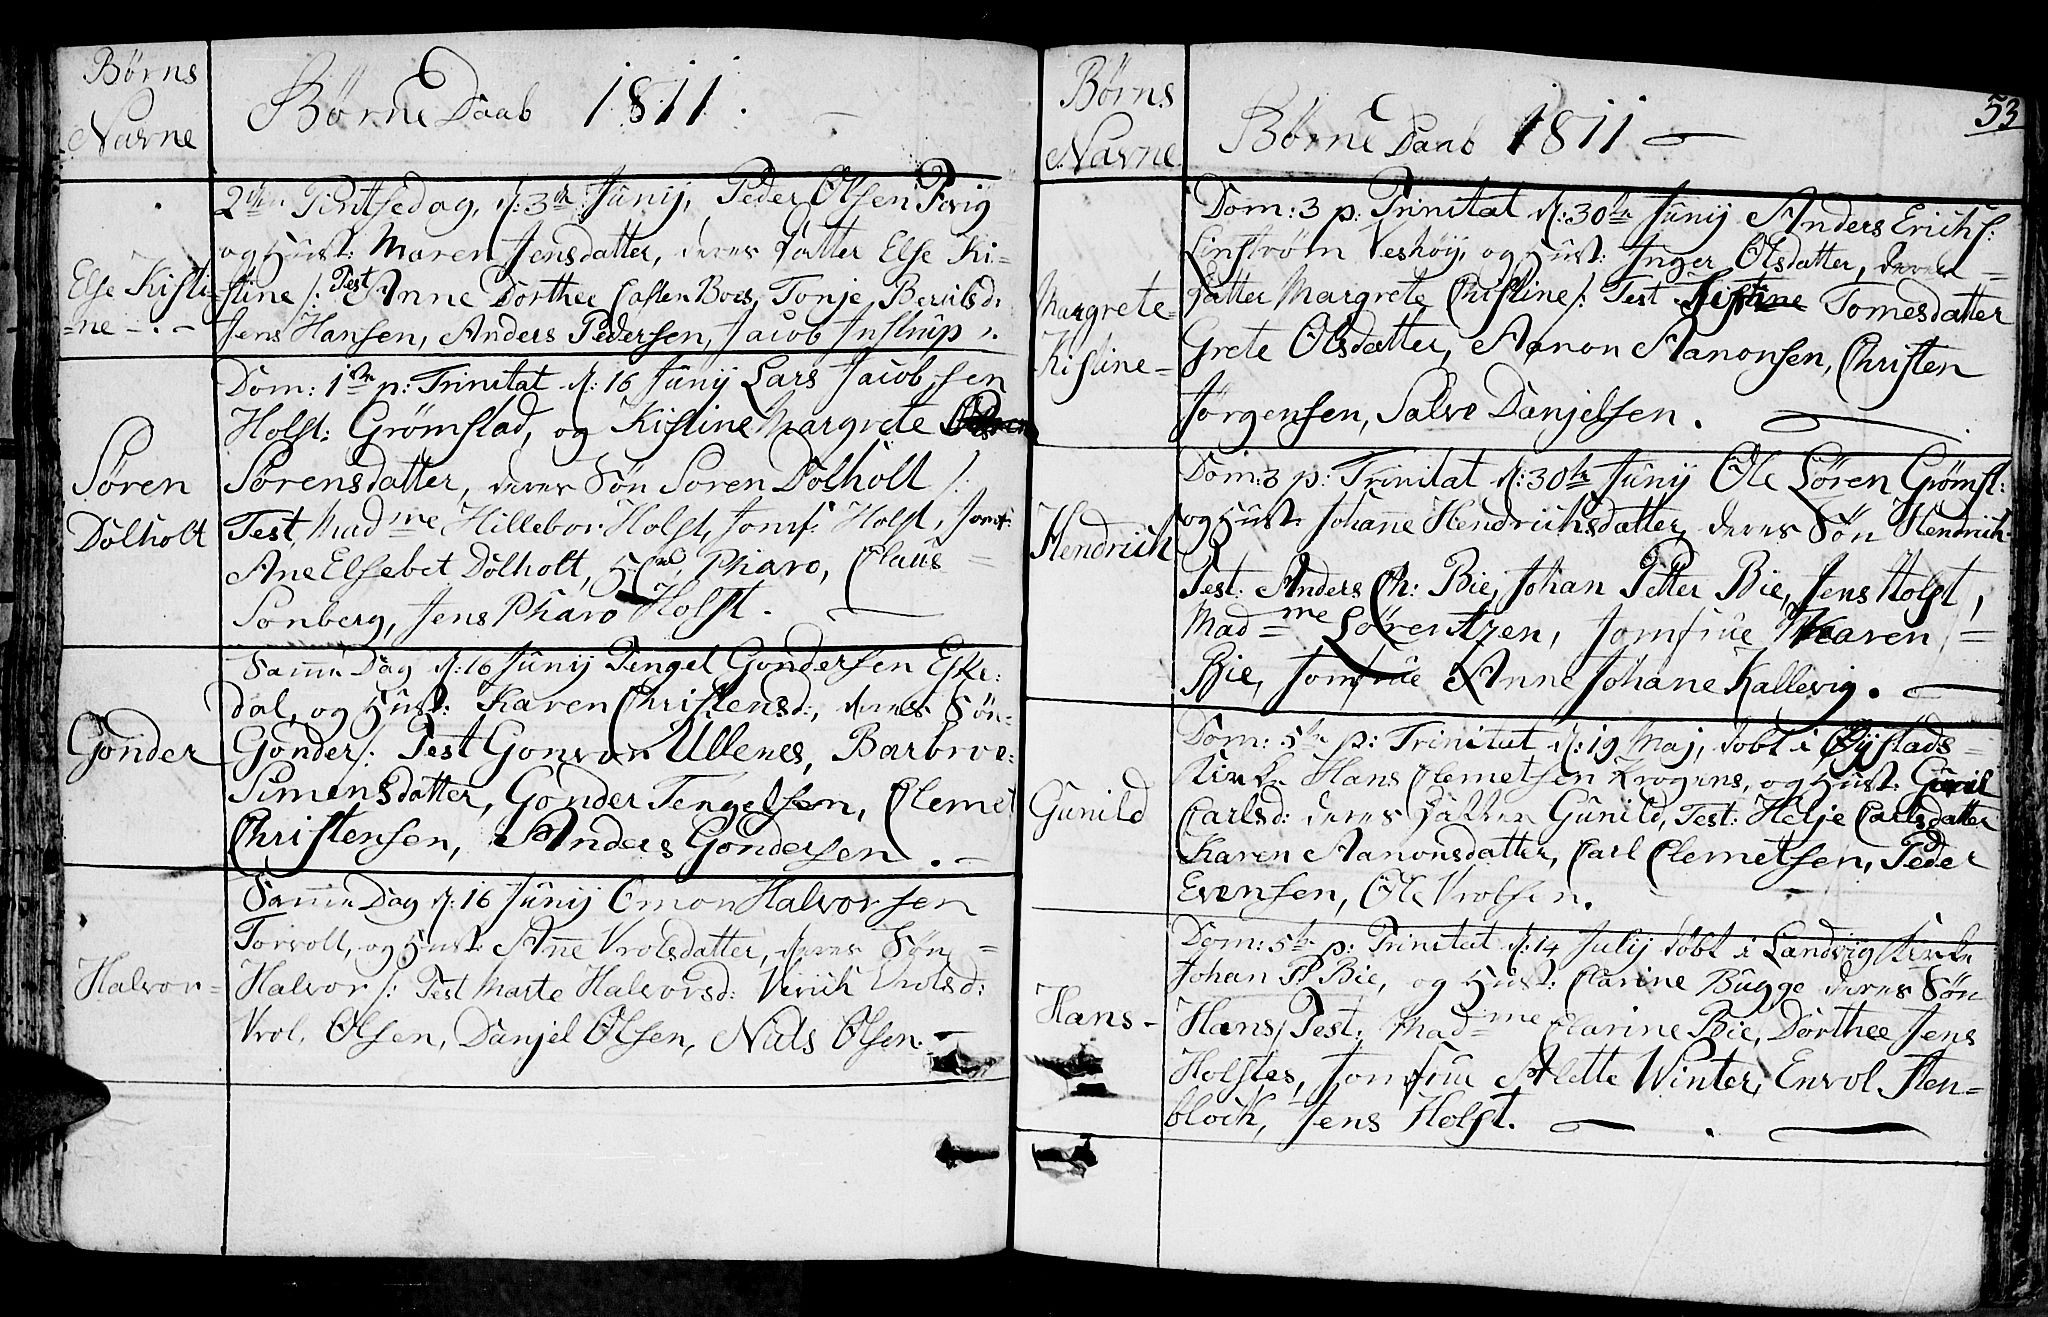 Børns
Navne
Børne Daab 1811.
2den Pintsedag, d: 3de Junij, Peder Olsen Pevig
og Hust: Maren Jensdatter, deres Datter Else Ki-
Else Kisti-
stine /: Test Anne Dorthee Casten Boes, Tonje Beruldsd:
ne -.-
Jens Hansen, Anders Pedersen, Jacob Instrup
Dom: 1ste p: Trinitat d: 16 Junij Lars Jacobsen
Holst: Grømstad, og Kistine Margrete
Søren
Sørensdatter, deres Søn Søren Dolholt /:
Dolholt
Test, Madme Hillebor Holst, Jomf: Holst, Jomf:
Ane Elsebet Dolholt, Pharo, Claus
Sonberg, Jens Pharo Holst.
Samme Dag d: 16 Junij Tengel Gondersen Eske-
dal, og Hust: Karen Christensd:, deres Søn-
Gonder
Gonder /: Test Gonvor Ullenes, Barbroe
Simensdatter, Gonder Tengelsen, Clemet
Christensen, Anders Gondersen. -
Samme Dag d: 16 Junij Omon Halvorsen
Torvolt, og Hust: Anne Vrolsdatter, deres Søn
Halvor-
Halvor /: Test Marte Halvorsd: Virich Vrolsd:
Vrol Olsen, Danjel Olsen, Niels Olsen. -
Børns
Navne
Børne Daab 1811
53
Dom: 3 p: Trinitat d: 30te Junij Anders Erichs:
Linstrøm Veshøy, og Hust: Inger Olsdatter, deres
Margrete
Datter Margrete Christine /: Test Kistine Tomesdatter
Kistine-
Grete Olsdatter, Aanon Aanonsen, Christen
Jørgensen, Salve Danjelsen.
Dom: 3 p: Trinitat d: 30te Junij Ole Søren Grømst:
Hendrich
og Hust: Johanne Hendrichsdatter, deres Søn Hendrich
Test: Anders Ch: Bie, Johan Petter Bie, Jens Holst,
Madme Lørentzen, Jomfrue Maren
Bie, Jomfrue Anne Johane Kallevig.
Dom: 5te p: Trinitat d: 19 Maj, døbt i Øystads
Kirke Hans Clemetsen Krogens, og Hust:
Gunild
Carlsd: deres Datter Gunild, Test: Helje Carlsdatter
Karen Aanonsdatter, Carl Clemetsen, Peder
Evensen, Ole Vrolsen.
Dom: 5te p: Trinitat d: 14 Julij døbt i Landvig Kirke
Johan P. Bie, og Hust: Carine Bugge deres Søn
Hans-
Hans/ Test: Madme Carine Bie, Dorthee Jens
Holstes, Jomfrue Alette Winter, Envol Sten-
block, Jens Holst.